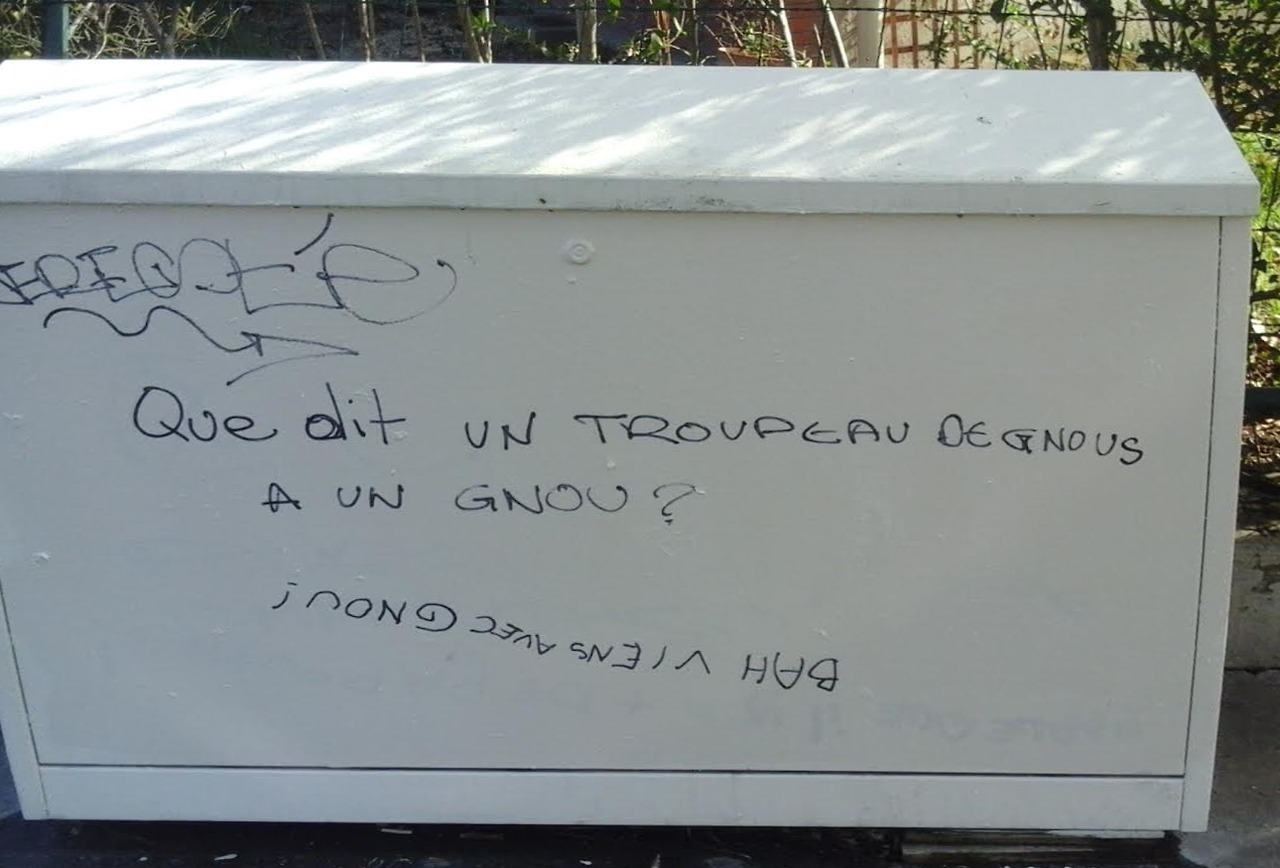 Que dit UN TROUPEAU DE GNOUS
A UN GNOU ?
BAH VIENS AVEC GNOU !